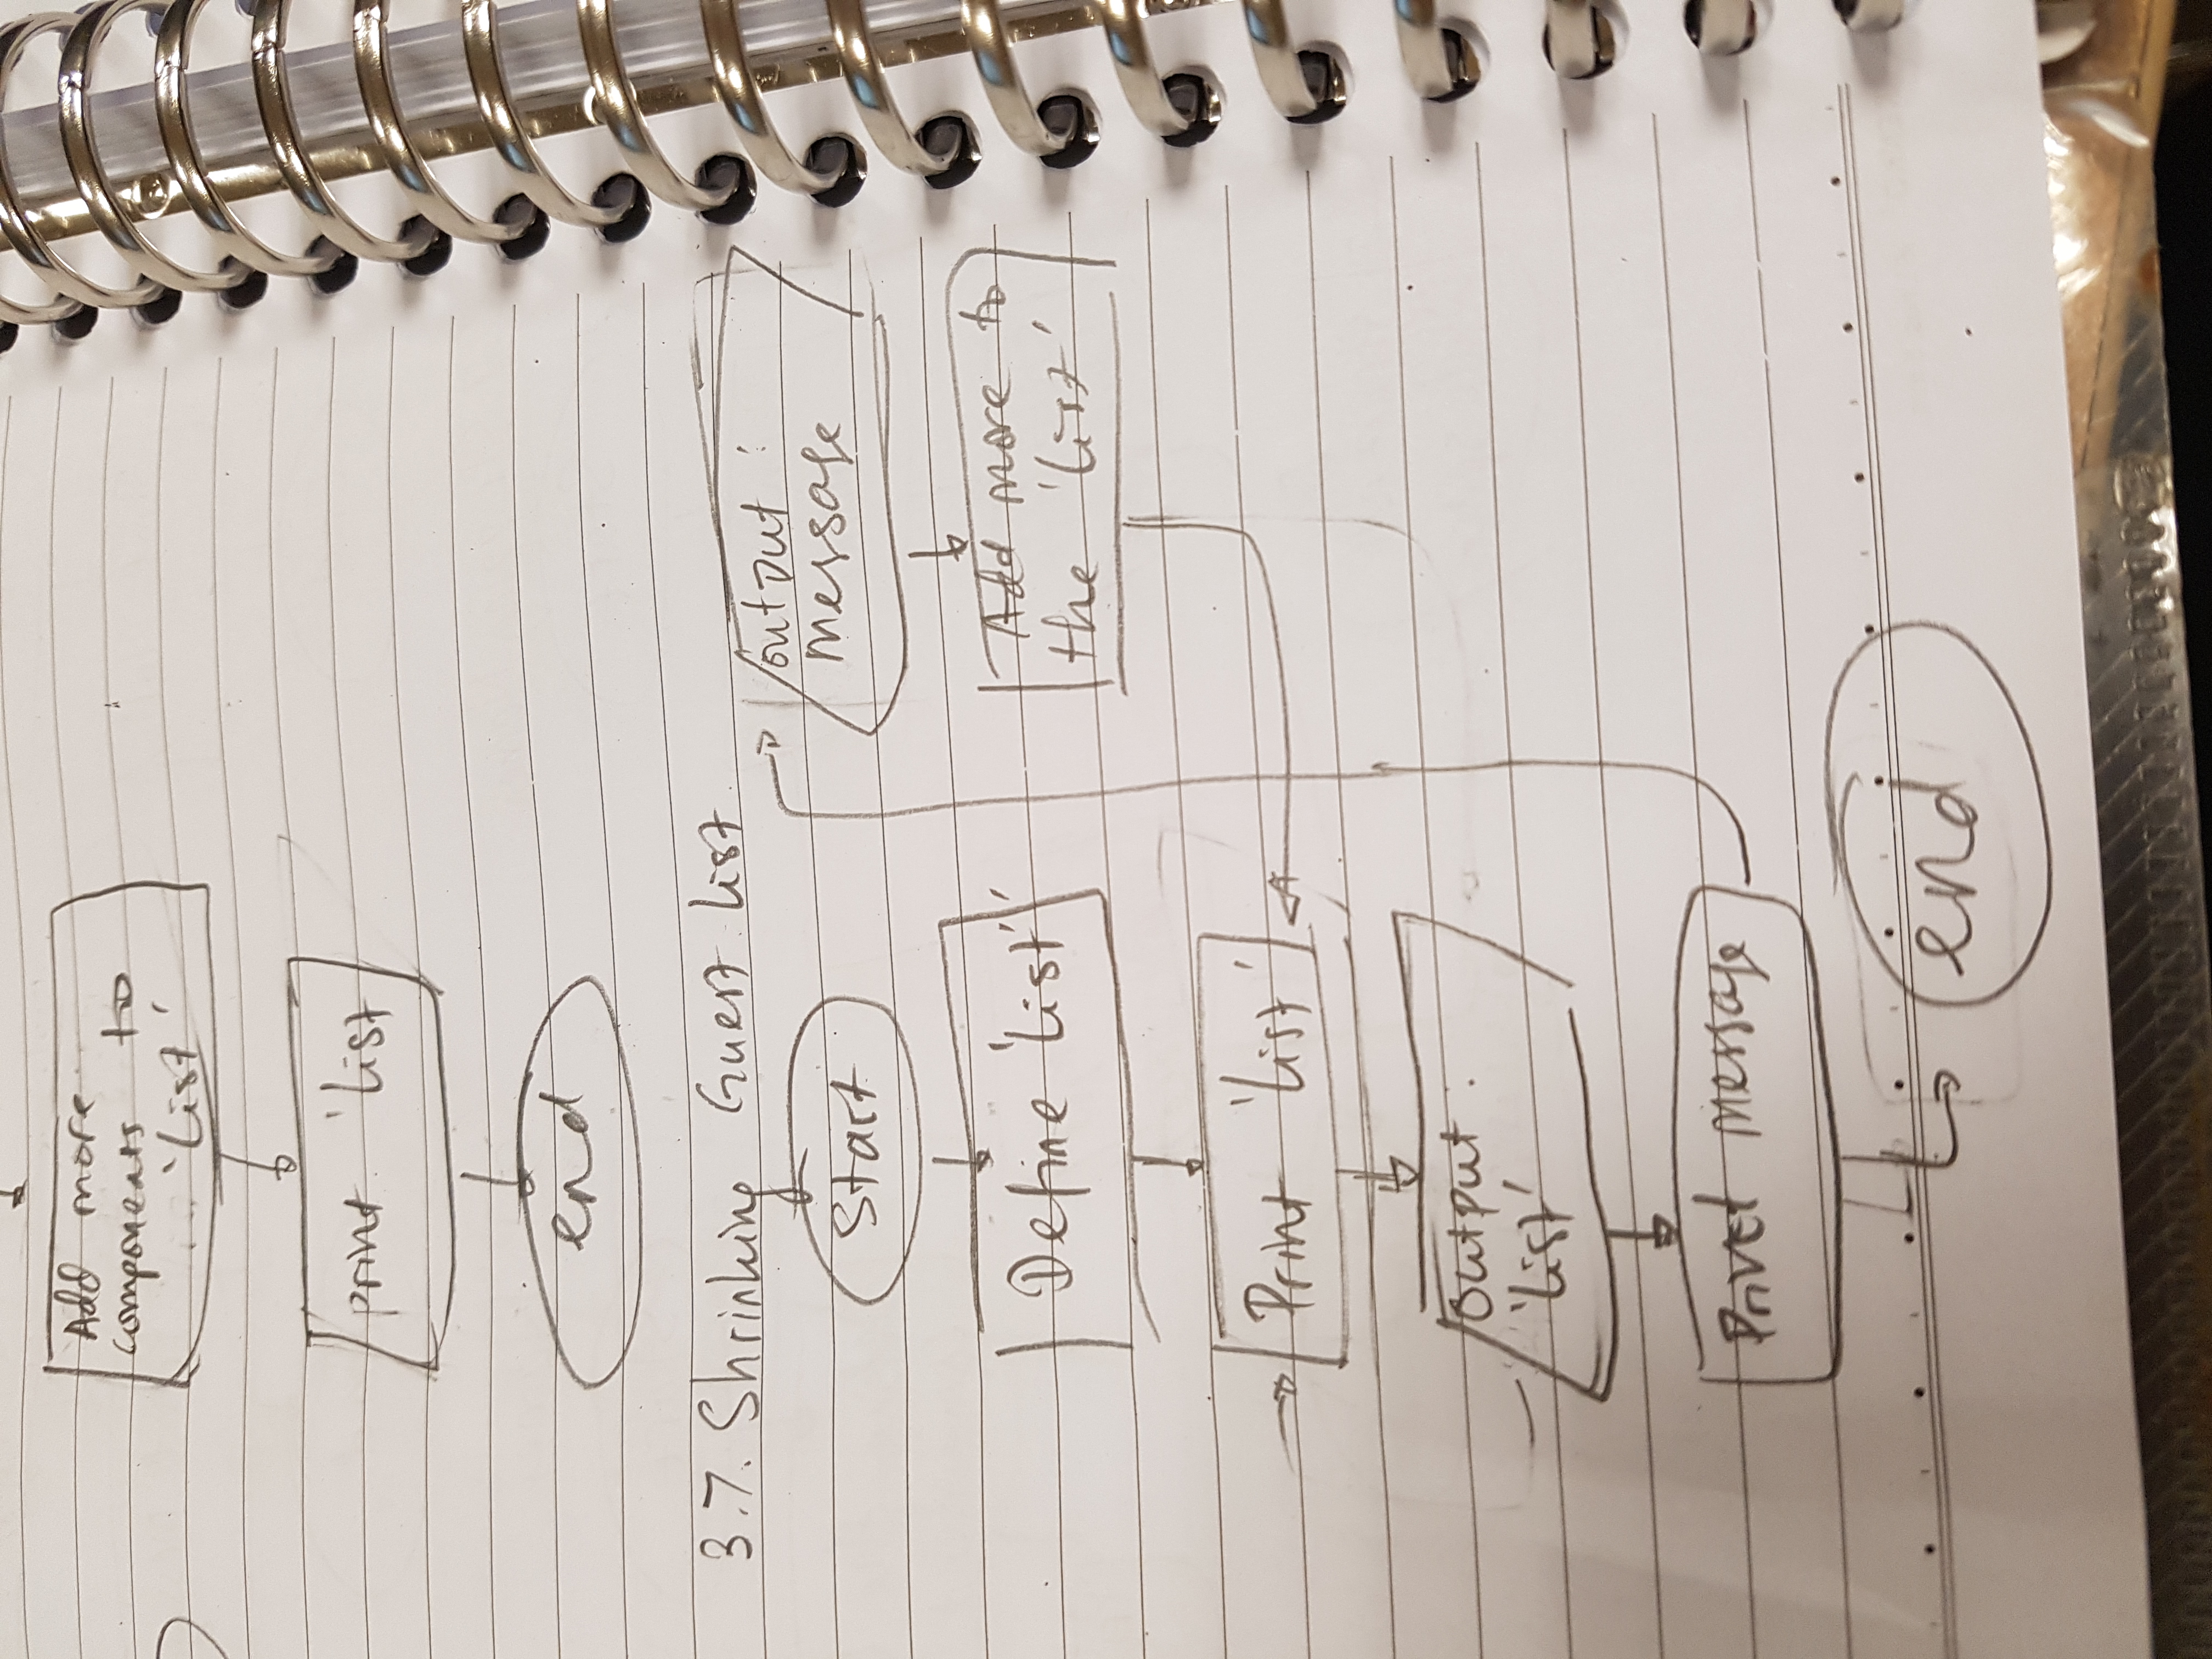 Add more
components to
'List'
print 'list
end
3.7. Shrinking Guest list
Start
Define 'list''
Print 'list'
output :
'list'
Print message
output :
message
Add more to
the 'list'
end